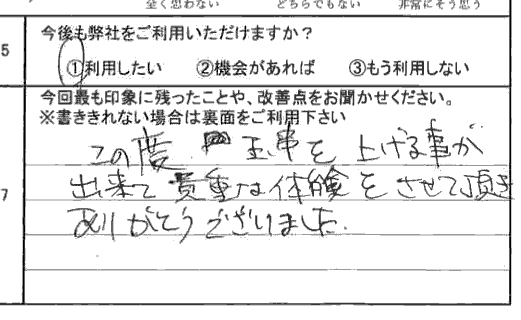 全く思わない どちらでもない 非常にそう思う
5 今後も弊社をご利用いただけますか？
①利用したい ②機会があれば ③もう利用しない
今回最も印象に残ったことや、改善点をお聞かせください。
※書ききれない場合は裏面をご利用下さい
7 この度 玉串を上げる事が
出来て貴重な体験をさせて頂き
ありがとうございました.